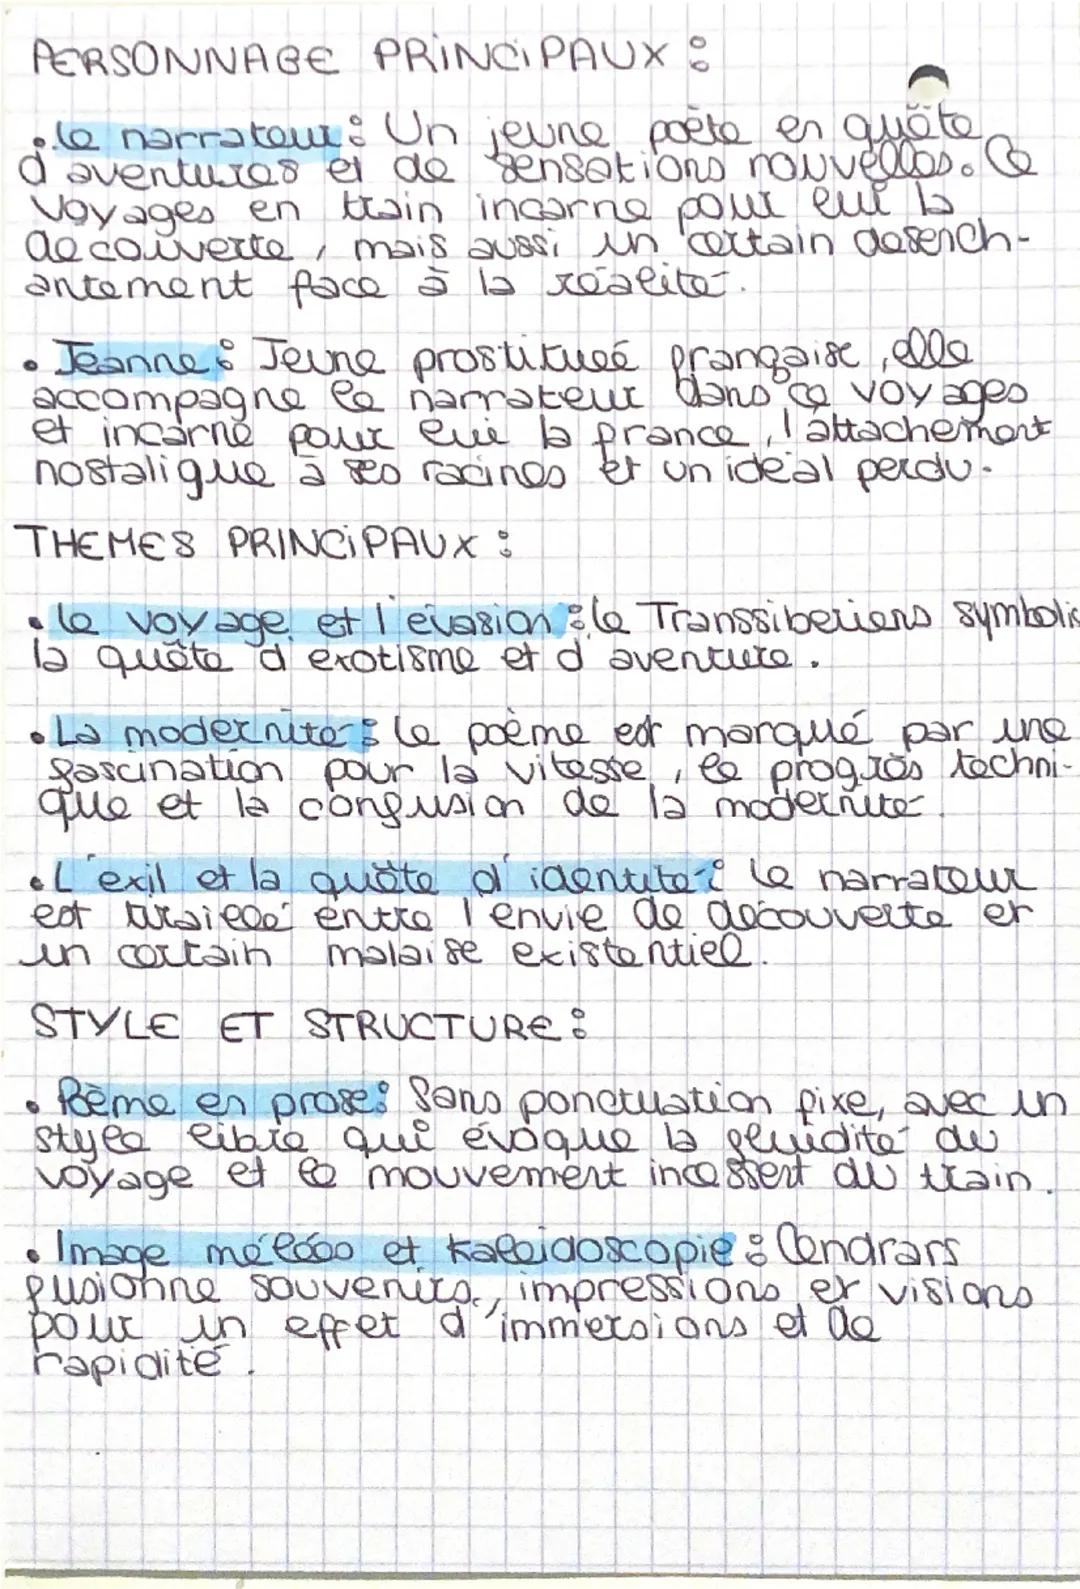 PERSONNAGE PRINCIPAUX :
• le narrateur : Un jeune poète en quête
d'aventures et de sensations nouvelles. Ce
voyages en train incarne pour lui la
découverte, mais aussi un certain desench-
antement face à la réalité.
• Jeanne : Jeune prostitueé française, elle
accompagne le narrateur dans ce voyages
et incarne pour lui la france, l'attachement
nostaligue à ses racines et un ideal perdu.
THEMES PRINCIPAUX :
• le voyage et l'évasion : le Transsiberiens symbolis
la quête d'exotisme et d'aventure.
• La modernité : le poème est marqué par une
fascination pour la vitesse, le progrès techni-
que et la confusion de la modernité.
• L'exil et la quête d'identité : le narrateur
est tiraillé entre l'envie de découverte et
un certain malaise existentiel.
STYLE ET STRUCTURE :
• Poème en prose : Sans ponctuation fixe, avec un
style libre qui évoque la fluidité du
voyage et le mouvement incessent du train.
• Image mélées et kaleidoscopie : Cendrars
fusionne souvenirs, impressions et visions
pour un effet d'immersions et de
rapidité.